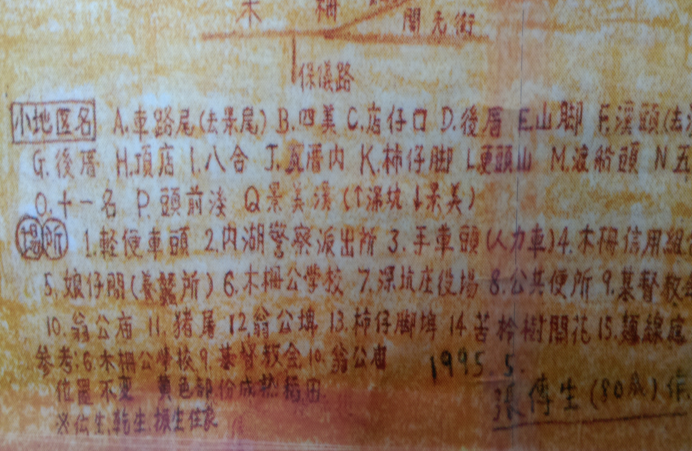 木 柵
開元街
保儀路
小地区名 A.車路尾(去景尾) B.四美 C.店仔口 D.後厝 E.山脚 F.溪頭(去
G.後厝 H.頂店 I.八合 J.瓦厝内 K.柿仔脚 L.更頭山 M.渡船頭 N五
O.十一名 P.頭前淺 Q景美溪(↑深坑↓景美)
場所 1.輕便車頭 2.内湖警察派出所 3.手車頭(人力車) 4.木柵信用組
5.娘仔間(養蠶所) 6.木柵公学校 7.深坑庄役場 8.公共便所 9.基督教
10.翁公庙 11.猪屠 12.翁公埤 13.柿仔脚埤 14.苦柃樹開花 15.麵線庭
參考:6.木柵公學校 9.基督教会 10.翁公庙
位置不变 黄色部份成熟稻田
※伝生.乾生.振生住家
1995 5.
張傳生(80歲)作